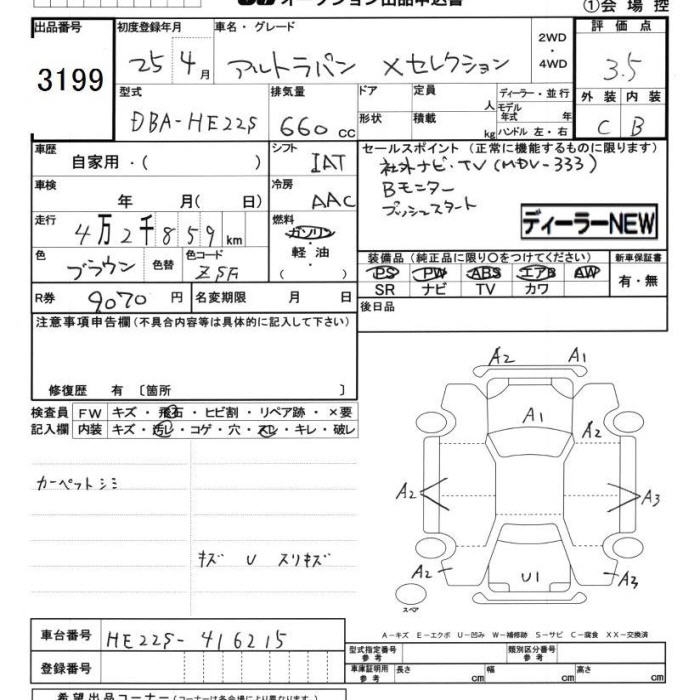 オークション出品申込書
①会場控
出品番号
3199
初度登録年月
25 4月
車名・グレード
アルトラパン Xセレクション
2WD
・
4WD
評価点
3.5
外装 内装
C B
型式
DBA-HE22S
排気量
660 cc
ドア
形状
定員
人
積載
kg
ディーラー・並行
モデル
年式 年
ハンドル 左・右
車歴
自家用・( )
シフト
IAT
セールスポイント (正常に機能するものに限ります)
社外ナビ・TV (MDV-333)
Bモニター
プッシュスタート
ディーラーNEW
車検
年 月( 日)
冷房
AAC
走行
4万2千859km
燃料
ガソリン
・
軽油
( )
色
ブラウン
色替
色コード
ZSA
装備品(純正品に限り〇をつけてください)
PS PW ABS エアB AW
SR ナビ TV カワ
新車保証書
有・無
R券
9070円
名変期限 月 日
後日品
注意事項申告欄(不具合内容等は具体的に記入して下さい)
修復歴 有 〔箇所 〕
検査員
記入欄
FW キズ・飛石・ヒビ割・リペア跡・×要
内装 キズ・汚レ・コゲ・穴・スレ・キレ・破レ
カーペットシミ
キズ U スリキズ
A2 A1
A1
A2
A2
A3
A2
U1
A3
スペア
A-キズ E-エクボ U-凹み W-補修跡 S-サビ C-腐食 XX-交換済
車台番号
HE22S-416215
登録番号
型式指定番号
参考
類別区分番号
参考
車庫証明用
参考
長さ cm
幅 cm
高さ cm
希望出品コーナー(コーナーは各会場により異なります)